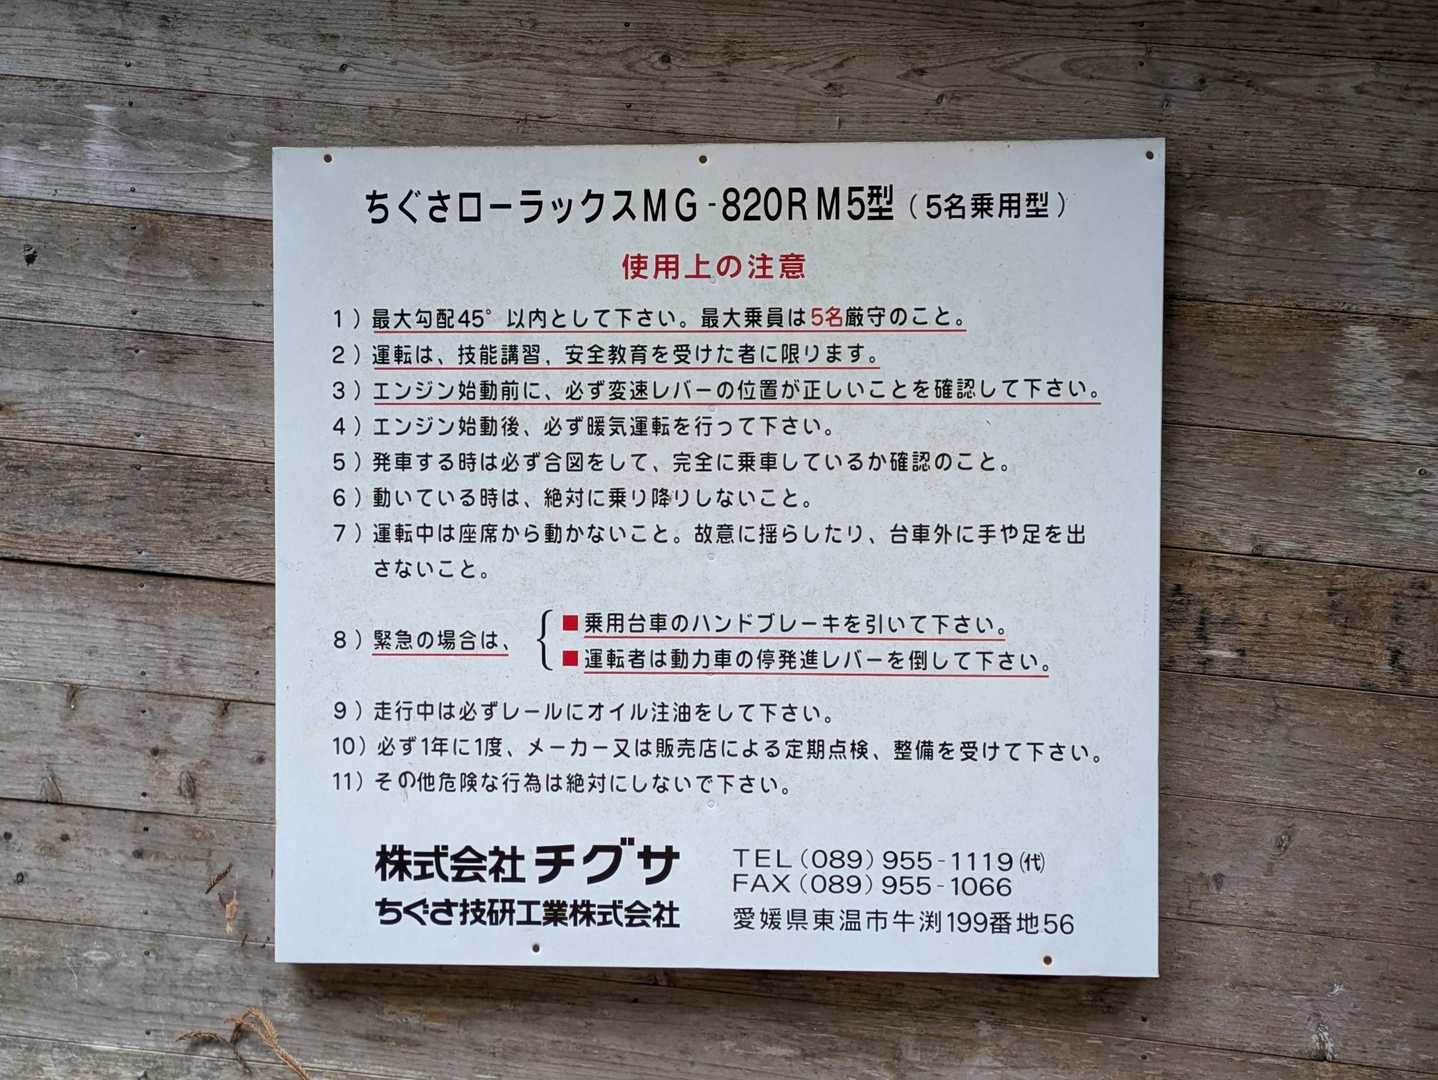 ちぐさローラックスMG-820RM5型（5名乗用型）
使用上の注意
1）最大勾配45°以内として下さい。最大乗員は5名厳守のこと。
2）運転は、技能講習、安全教育を受けた者に限ります。
3）エンジン始動前に、必ず変速レバーの位置が正しいことを確認して下さい。
4）エンジン始動後、必ず暖気運転を行って下さい。
5）発車する時は必ず合図をして、完全に乗車しているか確認のこと。
6）動いている時は、絶対に乗り降りしないこと。
7）運転中は座席から動かないこと。故意に揺らしたり、台車外に手や足を出
さないこと。
8）緊急の場合は、
■乗用台車のハンドブレーキを引いて下さい。
■運転者は動力車の停発進レバーを倒して下さい。
9）走行中は必ずレールにオイル注油をして下さい。
10）必ず1年に1度、メーカー又は販売店による定期点検、整備を受けて下さい。
11）その他危険な行為は絶対にしないで下さい。
株式会社チグサ
ちぐさ技研工業株式会社
TEL（089）955-1119㈹
FAX（089）955-1066
愛媛県東温市牛渕199番地56